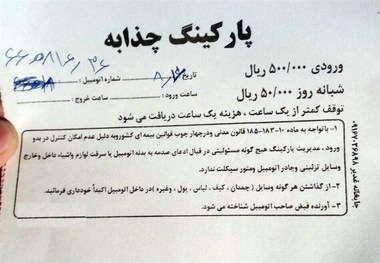 پارکینگ چذابه
ورودی ۵۰۰/۰۰۰ ریال
شبانه روز ۵۰/۰۰۰ ریال
تاریخ ۸/۶ شماره اتومبیل :
ساعت ورود : ساعت خروج :
توقف کمتر از یک ساعت ، هزینه یک ساعت دریافت می شود
۱- باتوجه به ماده ۱۰-۱۸۳-۱۸۵ قانون مدنی ودرچهار چوب قوانین بیمه ای کشوروبه دلیل عدم امکان کنترل در بدو
ورود ، مدیریت پارکینگ هیچ گونه مسئولیتی در قبال ادعای صدمه به بدنه اتومبیل یا سرقت لوازم واشیاء داخل وخارج
وسایل تزئینی وچادر اتومبیل ومتور سیکلت ندارد.
۲- از گذاشتن هر گونه وسایل ( چمدان ، کیف ، لباس ، پول ، وغیره) در داخل اتومبیل اکیداً خودداری فرمائید.
۳- آورنده قبض صاحب اتومبیل شناخته می شود.
چاپخانه غدیر ۰۹۱۶۷۰۳۶۸۹۸